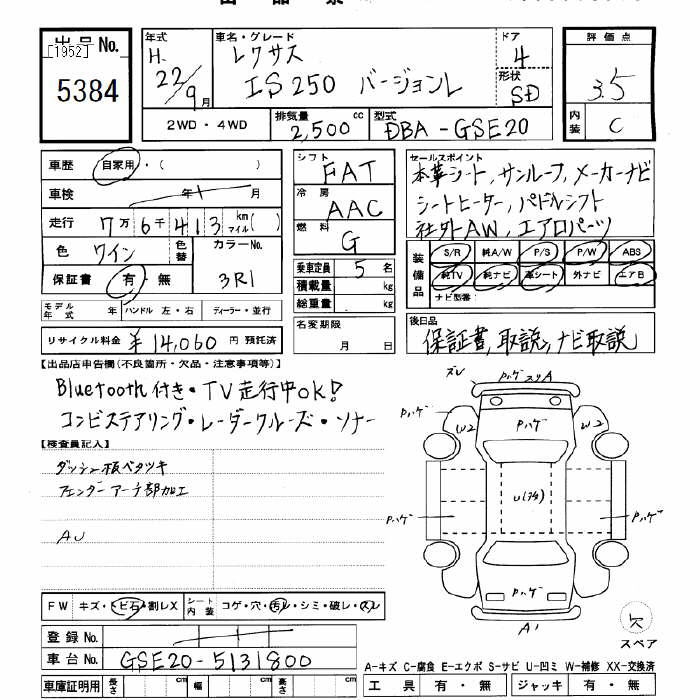 出品票
出品No.
[1952]
5384
年式
H.
22/9月
車名・グレード
レクサス
IS250 バージョンL
ドア
4
形状
SD
評価点
3.5
内装
C
2WD・4WD
排気量
2,500 cc
型式
DBA-GSE20
車歴 自家用・( )
車検 年 月
走行 7万6千413 km マイル( )
色 ワイン 色替 カラーNo. 3R1
保証書 有・無
モデル年式 年 ハンドル 左・右 ディーラー・並行
リサイクル料金 ¥14,060 円 預託済
シフト FAT
冷房 AAC
燃料 G
乗車定員 5 名
積載量 kg
総重量 kg
名変期限
月 日
セールスポイント
本革シート, サンルーフ, メーカーナビ
シートヒーター, パドルシフト
社外AW, エアロパーツ
装備品
S/R 純A/W P/S P/W ABS
純TV 純ナビ 革シート 外ナビ エアB
ナビ型番:
後日品
保証書, 取説, ナビ取説
【出品店申告欄(不良箇所・欠品・注意事項等)】
Bluetooth付き・TV走行中OK!
コンビステアリング・レーダークルーズ・ソナー
【検査員記入】
ダッシュ板ベタツキ
フェンダーアーチ部加工
AU
ズレ
PハゲスリA
Pハゲ
W2
Pハゲ
W2
Pハゲ
Pハゲ
Pハゲ
A1
欠
スペア
FW キズ・トビ石・割レX シート内装 コゲ・穴・汚レ・シミ・破レ・スレ
登録No.
車台No. GSE20-5131800
車庫証明用 長さ cm 幅 cm 高さ cm
A-キズ C-腐食 E-エクボ S-サビ U-凹ミ W-補修 XX-交換済
工具 有・無 ジャッキ 有・無